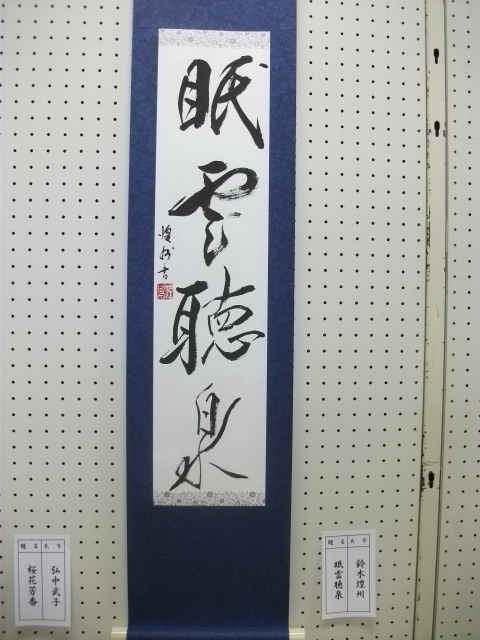 眠雲聴泉
煌州書
題名 氏名
鈴木煌州
眠雲聴泉
題名 氏名
弘中武子
桜花芳香